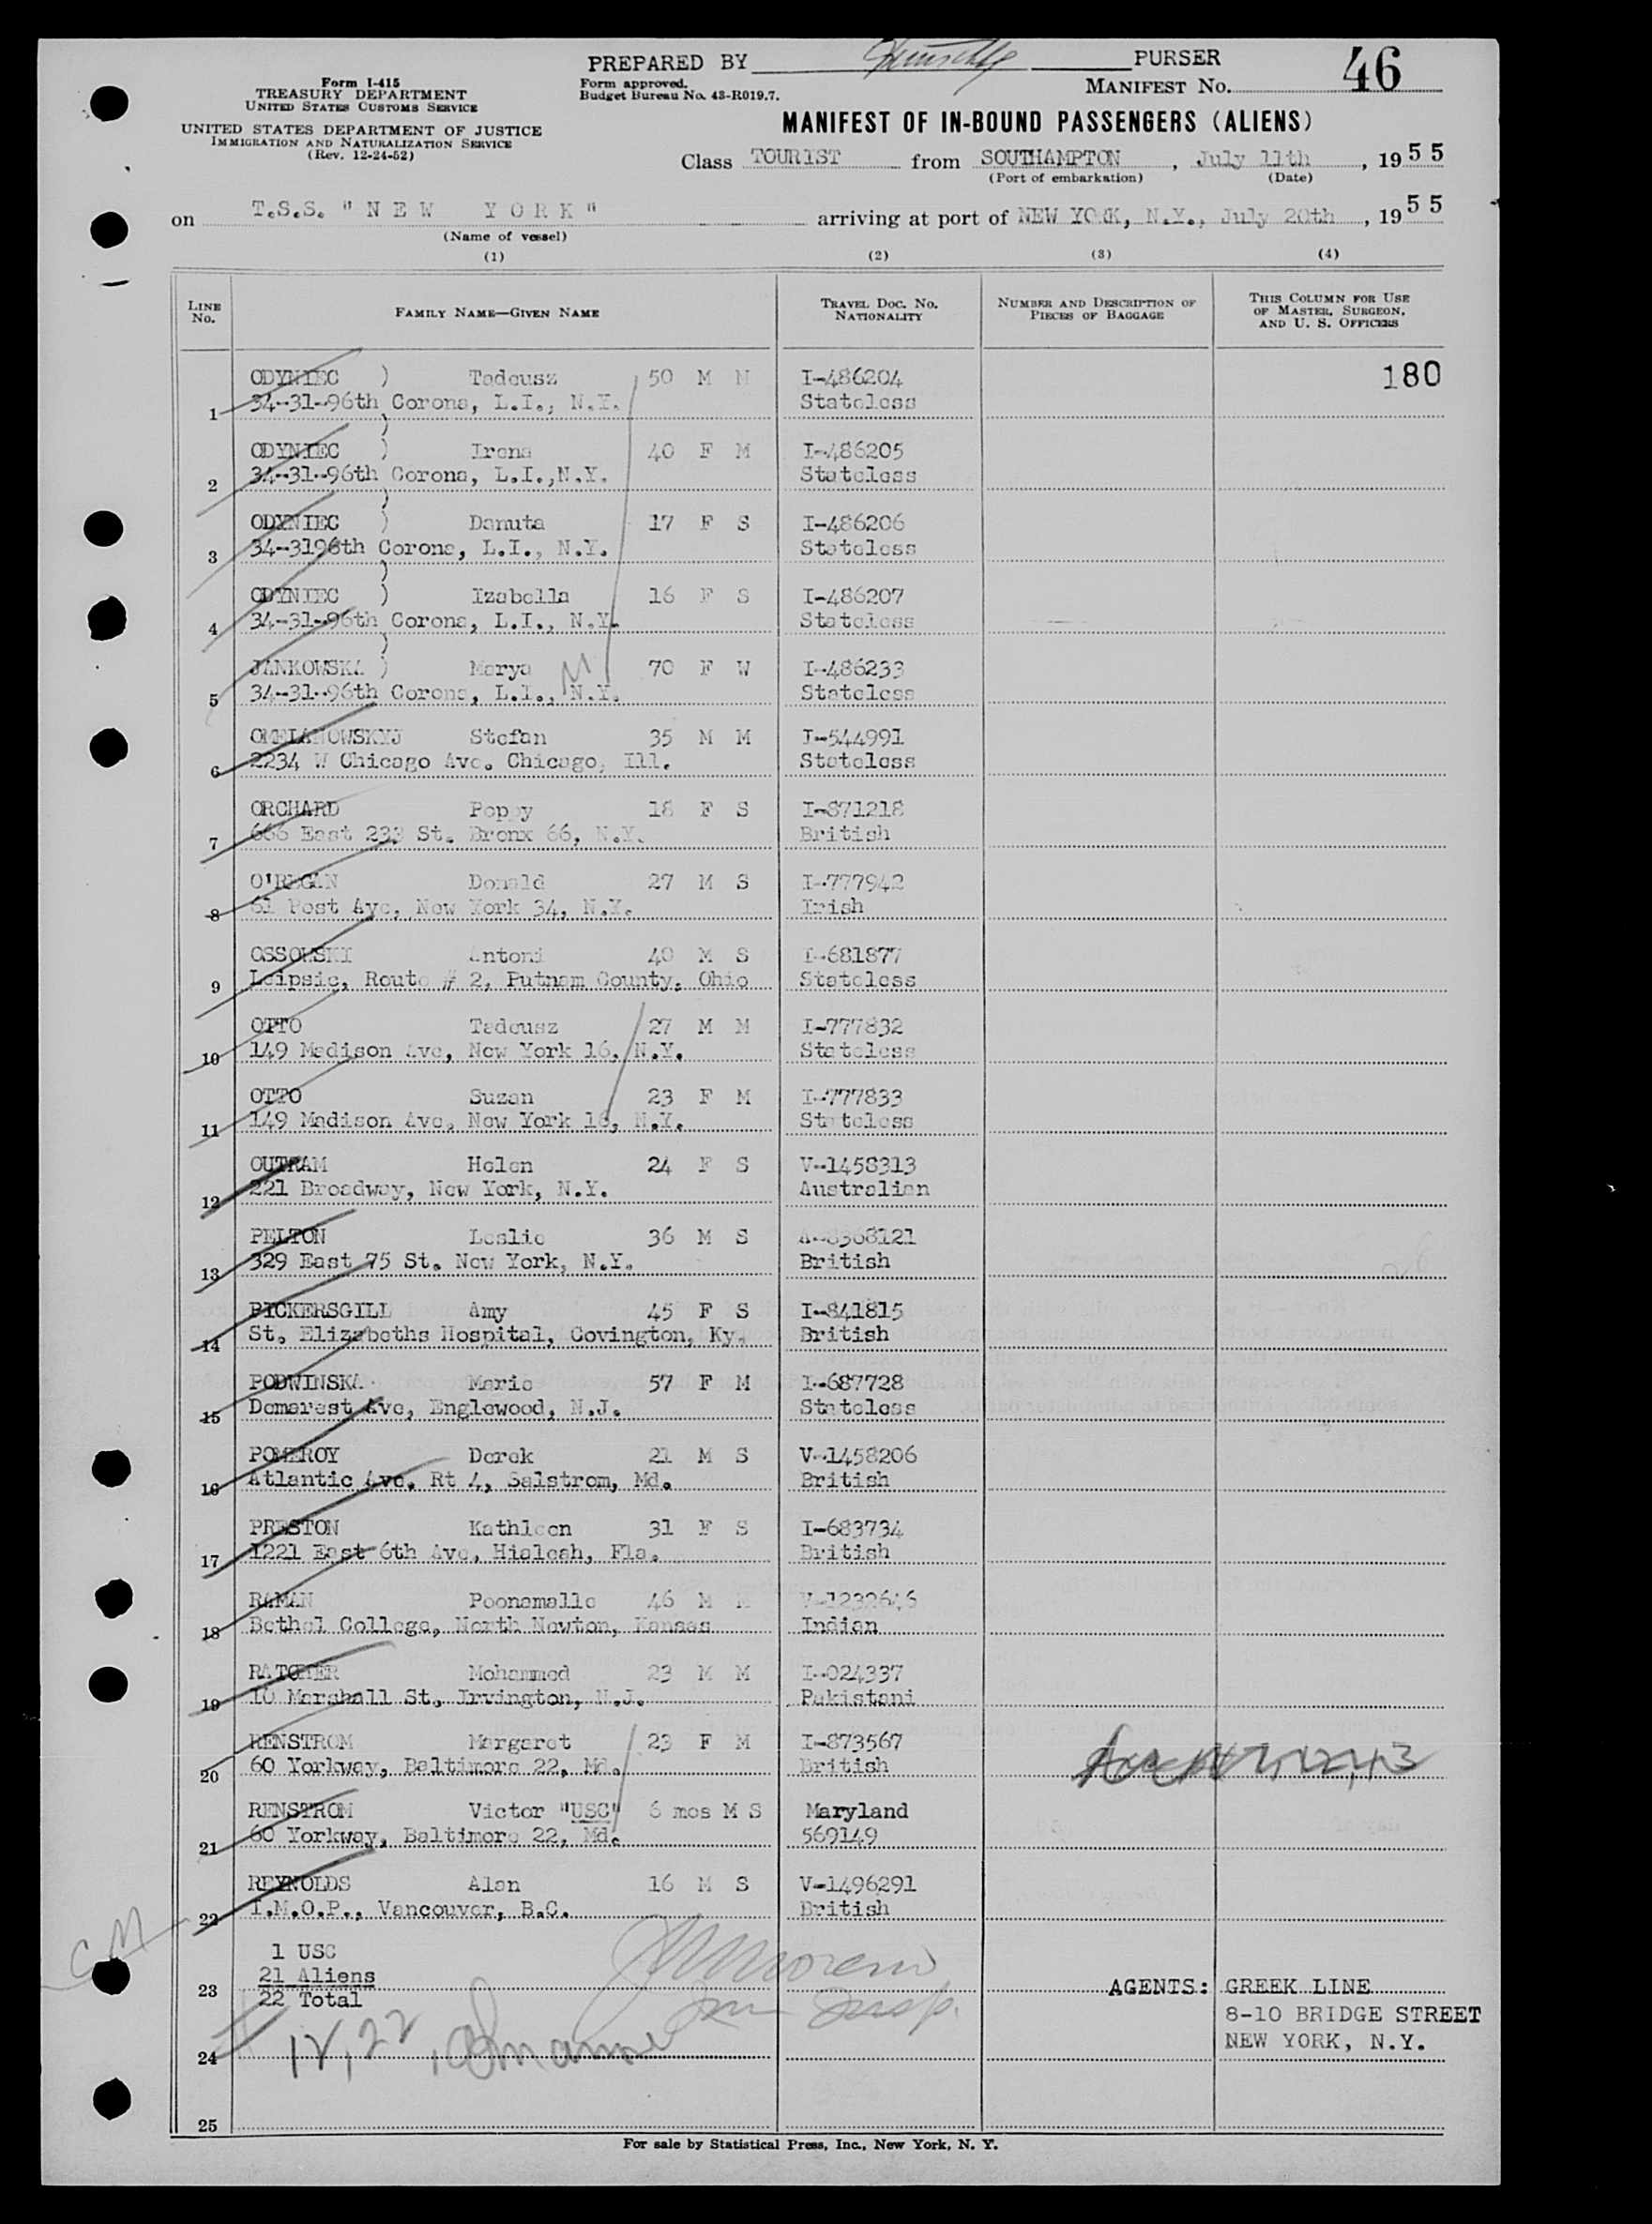 PREPARED BY PURSER
46
Form I-415
TREASURY DEPARTMENT
UNITED STATES CUSTOMS SERVICE
Form approved.
Budget Bureau No. 43-R019.7.
MANIFEST NO.
UNITED STATES DEPARTMENT OF JUSTICE
IMMIGRATION AND NATURALIZATION SERVICE
(Rev. 12-24-52)
MANIFEST OF IN-BOUND PASSENGERS (ALIENS)
Class TOURIST from SOUTHAMPTON, July 11th, 1955
(Port of embarkation) (Date)
on T.S.S. "NEW YORK" arriving at port of NEW YORK, N.Y., July 20th, 1955
(Name of vessel)
(1) (2) (3) (4)
LINE NO.
FAMILY NAME—GIVEN NAME
TRAVEL DOC. NO. NATIONALITY
NUMBER AND DESCRIPTION OF PIECES OF BAGGAGE
THIS COLUMN FOR USE OF MASTER, SURGEON, AND U. S. OFFICERS
180
ODYNIEC ) Tadeusz 50 M M I-486204
1 34--31--96th Corona, L.I., N.Y. Stateless
ODYNIEC ) Irena 40 F M I-486205
2 34--31--96th Corona, L.I.,N.Y. Stateless
ODYNIEC ) Danuta 17 F S I-486206
3 34--3196th Corona, L.I., N.Y. Stateless
ODYNIEC ) Izabella 16 F S I-486207
4 34--31--96th Corona, L.I., N.Y. Stateless
JANKOWSKA ) Marya 70 F W I-486233
5 34--31--96th Corona, L.I., N.Y. Stateless
OMELANOWSKYJ Stefan 35 M M I-544991
6 2234 W Chicago Ave. Chicago, Ill. Stateless
ORCHARD Poppy 18 F S I-871218
7 666 East 233 St. Bronx 66, N.Y. British
O'REGAN Donald 27 M S I-777942
8 61 Post Ave, New York 34, N.Y. Irish
OSSOWSKI Antoni 40 M S I-681877
9 Leipsic, Route # 2, Putnam County, Ohio Stateless
OTTO Tadeusz 27 M M I-777832
10 149 Madison Ave, New York 16, N.Y. Stateless
OTTO Suzan 23 F M I-777833
11 149 Madison Ave, New York 16, N.Y. Stateless
OUTRAM Helen 24 F S V-1458313
12 221 Broadway, New York, N.Y. Australian
PELTON Leslie 36 M S A-8368121
13 329 East 75 St. New York, N.Y. British
PICKERSGILL Amy 45 F S I-841815
14 St. Elizabeths Hospital, Covington, Ky. British
PODWINSKA Marie 57 F M I-687728
15 Demarest Ave, Englewood, N.J. Stateless
POMEROY Derek 21 M S V-1458206
16 Atlantic Ave. Rt 4, Salstrom, Md. British
PRESTON Kathleen 31 F S I-683734
17 1221 East 6th Ave, Hialeah, Fla. British
RAMAN Poonamalle 46 M M V-1232646
18 Bethel College, North Newton, Kansas Indian
RATCHER Mohammed 23 M M I-024337
19 10 Marshall St., Irvington, N.J. Pakistani
RENSTROM Margaret 23 F M I-873567
20 60 Yorkway, Baltimore 22, Md. British
RENSTROM Victor "USC" 6 mos M S Maryland
21 60 Yorkway, Baltimore 22, Md. 569149
REYNOLDS Alan 16 M S V-1496291
22 I.M.O.P., Vancouver, B.C. British
CM
1 USC
21 Aliens
23 22 Total
AGENTS: GREEK LINE
8-10 BRIDGE STREET
NEW YORK, N.Y.
24 12, 22
25
For sale by Statistical Press, Inc., New York, N. Y.